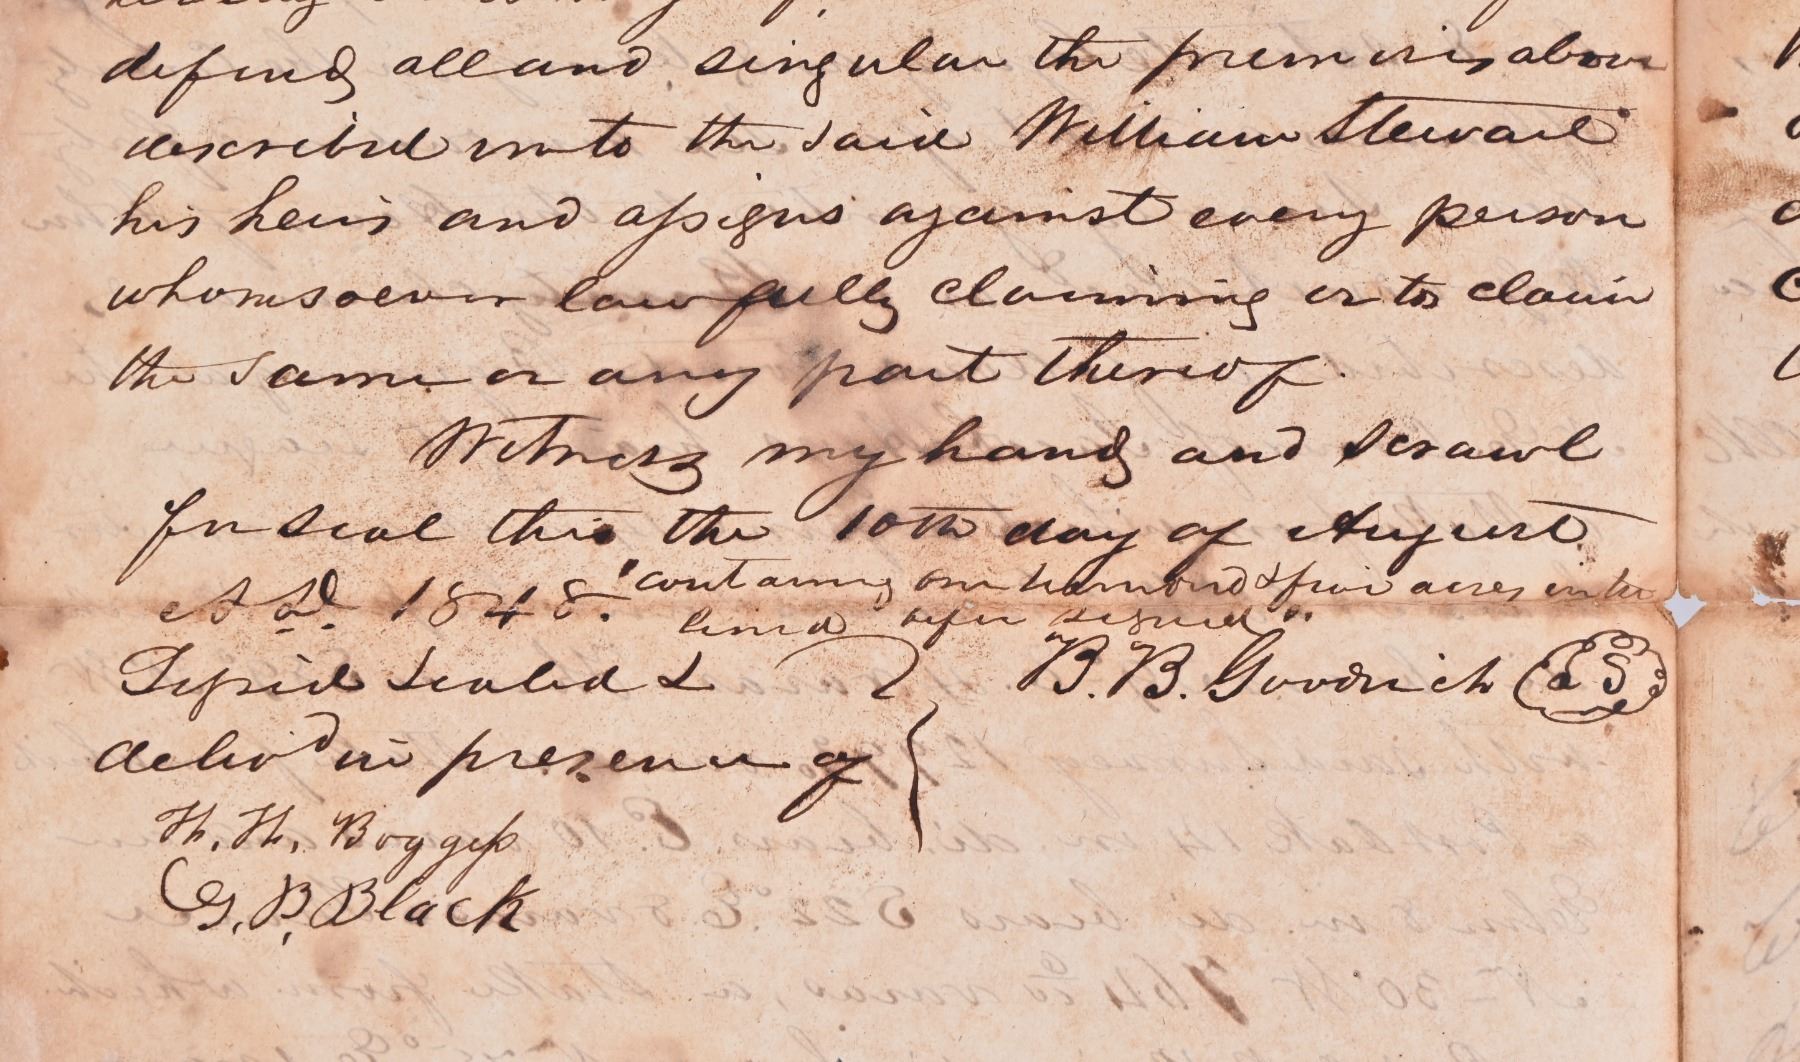 defend all and singular the premises above
described unto the said William Stewart
his heirs and assigns against every person
whomsoever lawfully claiming or to claim
the same or any part thereof.
Witness my hand and scrawl
for seal this the 10th day of August
A.D. 1848. "containing one hundred & five acres inter
lined before signed".
Signed sealed &
B. B. Goodrich
delivd in presence of
H. H. Boggess
G. B. Black